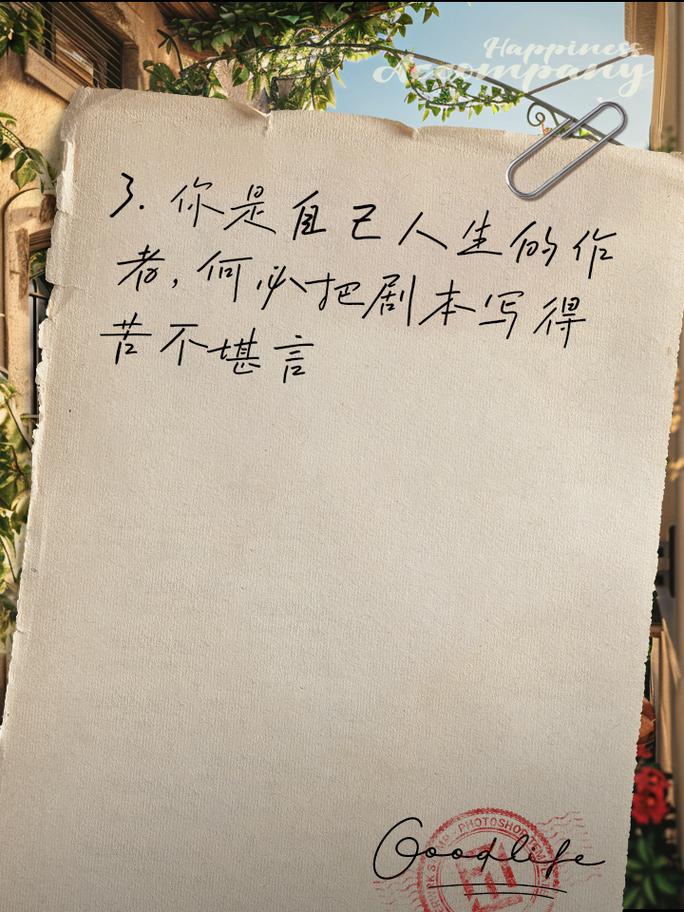 Happiness
Accompany
3. 你是自己人生的作
者，何必把剧本写得
苦不堪言
Goodlife
PHOTOSHOP